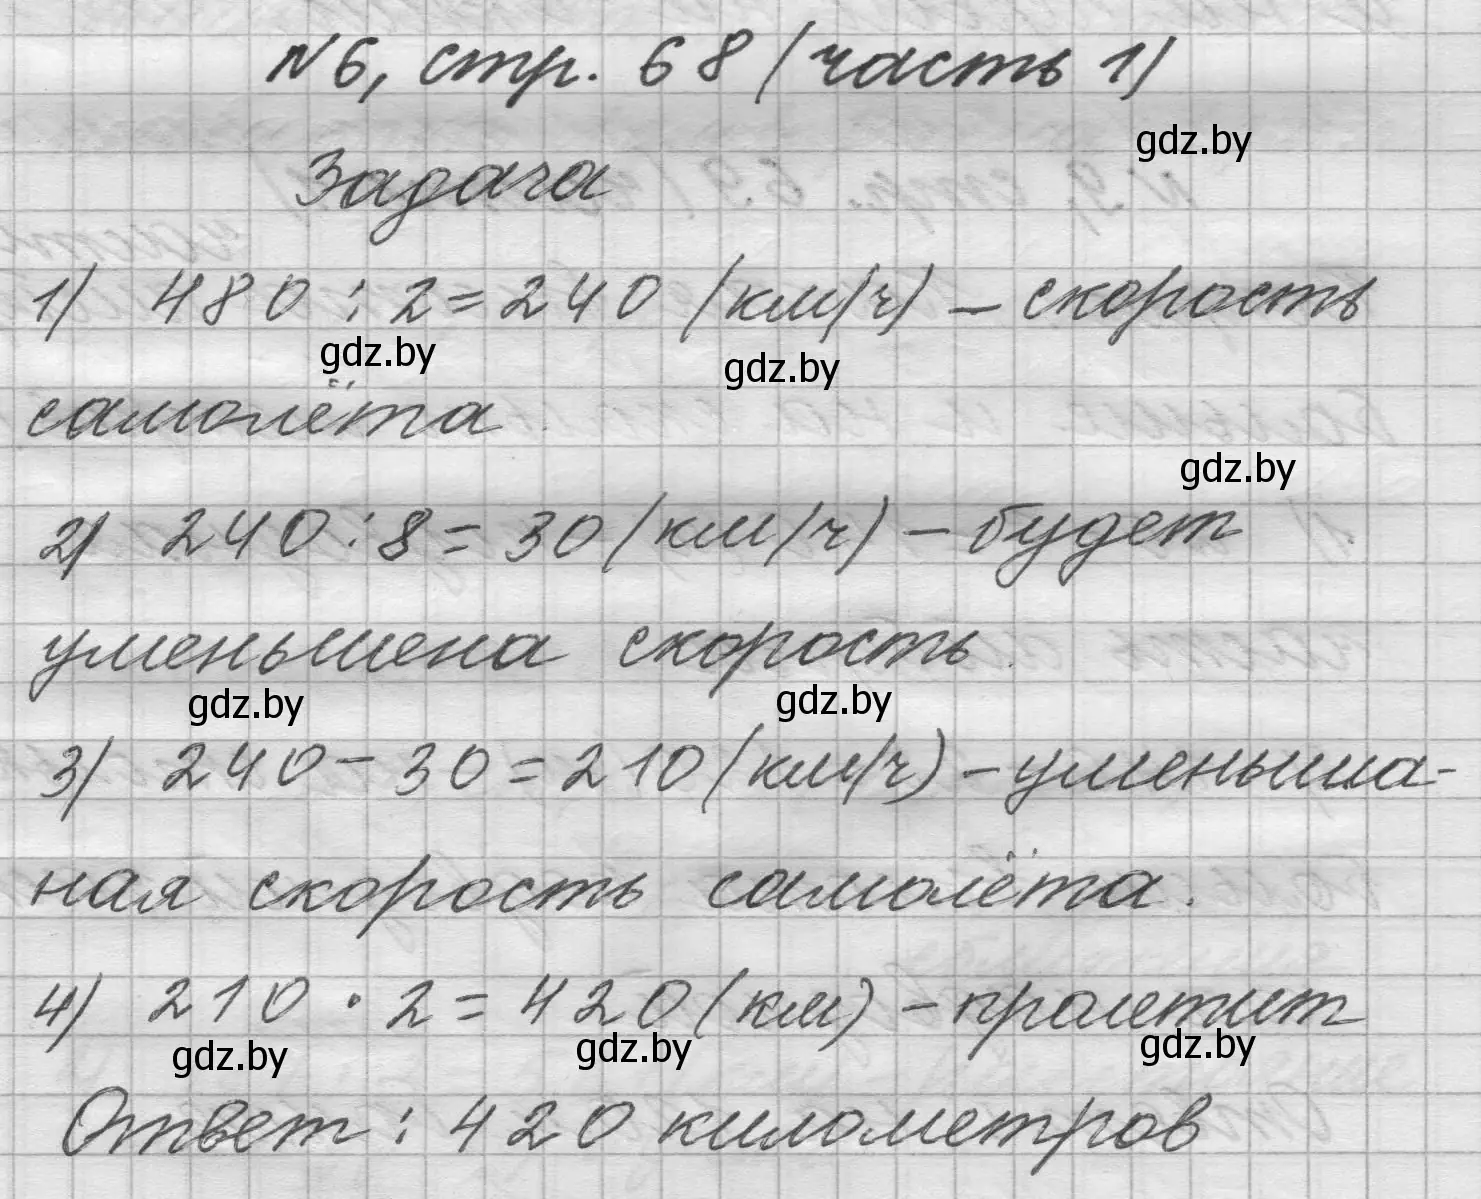 №6, стр. 68 (часть 1)
gdz.by
Задача
1) 480 : 2 = 240 (км/ч) – скорость
gdz.by gdz.by
самолёта
gdz.by
2) 240 : 8 = 30 (км/ч) – будет
уменьшена скорость.
gdz.by gdz.by
3) 240 – 30 = 210 (км/ч) – уменьша-
ная скорость самолёта.
4) 210 · 2 = 420 (км) – пролетит
gdz.by gdz.by gdz.by
Ответ: 420 километров